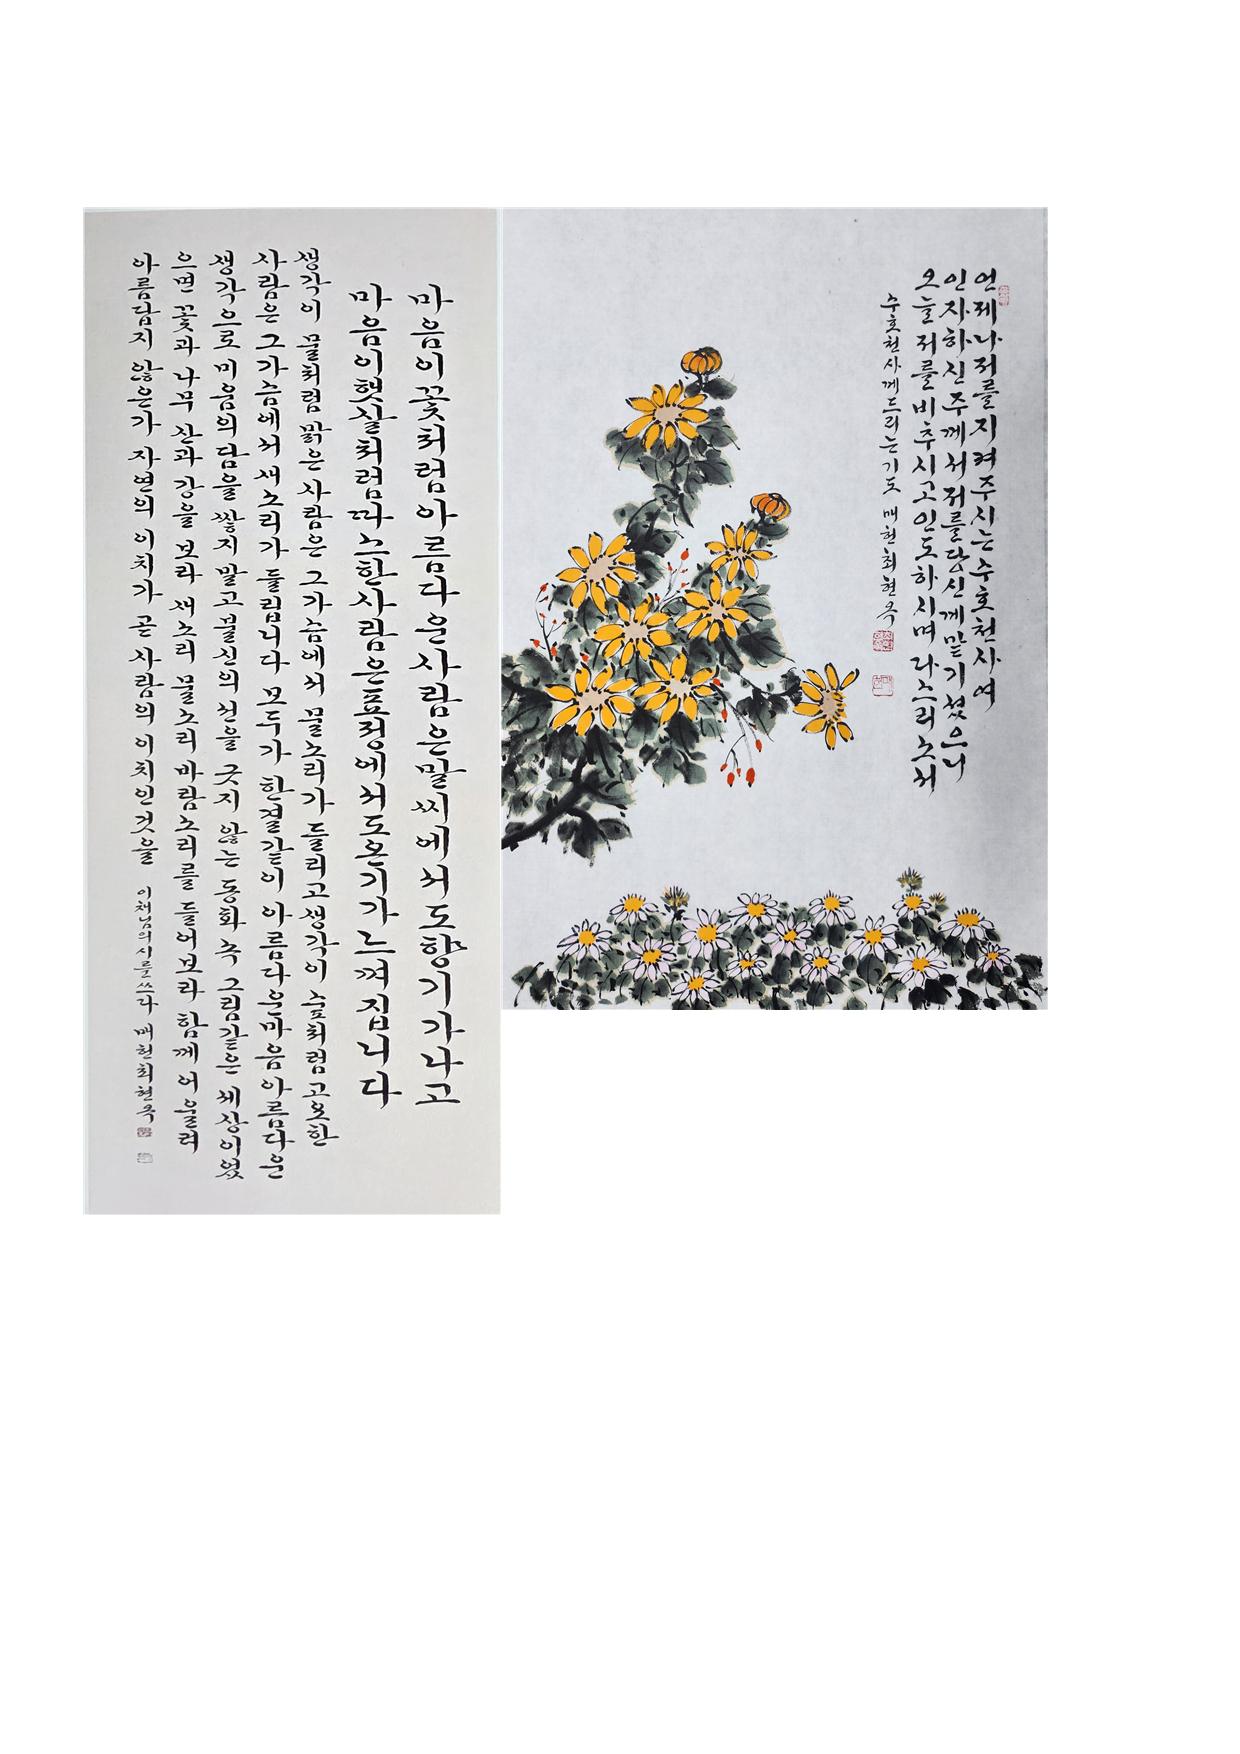 마음이꽃처럼아름다운사람은말씨에서도향기가나고
마음이햇살처럼따스한사람은표정에서도온기가느껴집니다
생각이 물처럼 맑은 사람은 그가슴에서 물소리가 들리고 생각이 숲처럼 고요한
사람은 그가슴에서 새소리가 들립니다 모두가 한결같이 아름다운마음 아름다운
생각으로 미움의 담을 쌓지 말고 불신의 선을 긋지 않는 동화 속 그림같은 세상이었
으면 꽃과 나무 산과 강을 보라 새소리 물소리 바람소리를 들어보라 함께 어울려
아름답지 않은가 자연의 이치가 곧 사람의 이치인것을
이채님의시를쓰다 매헌최현옥
언제나저를지켜주시는수호천사여
인자하신주께서저를당신께맡기셨으니
오늘저를비추시고인도하시며다스리소서
수호천사께드리는기도 매헌최현옥